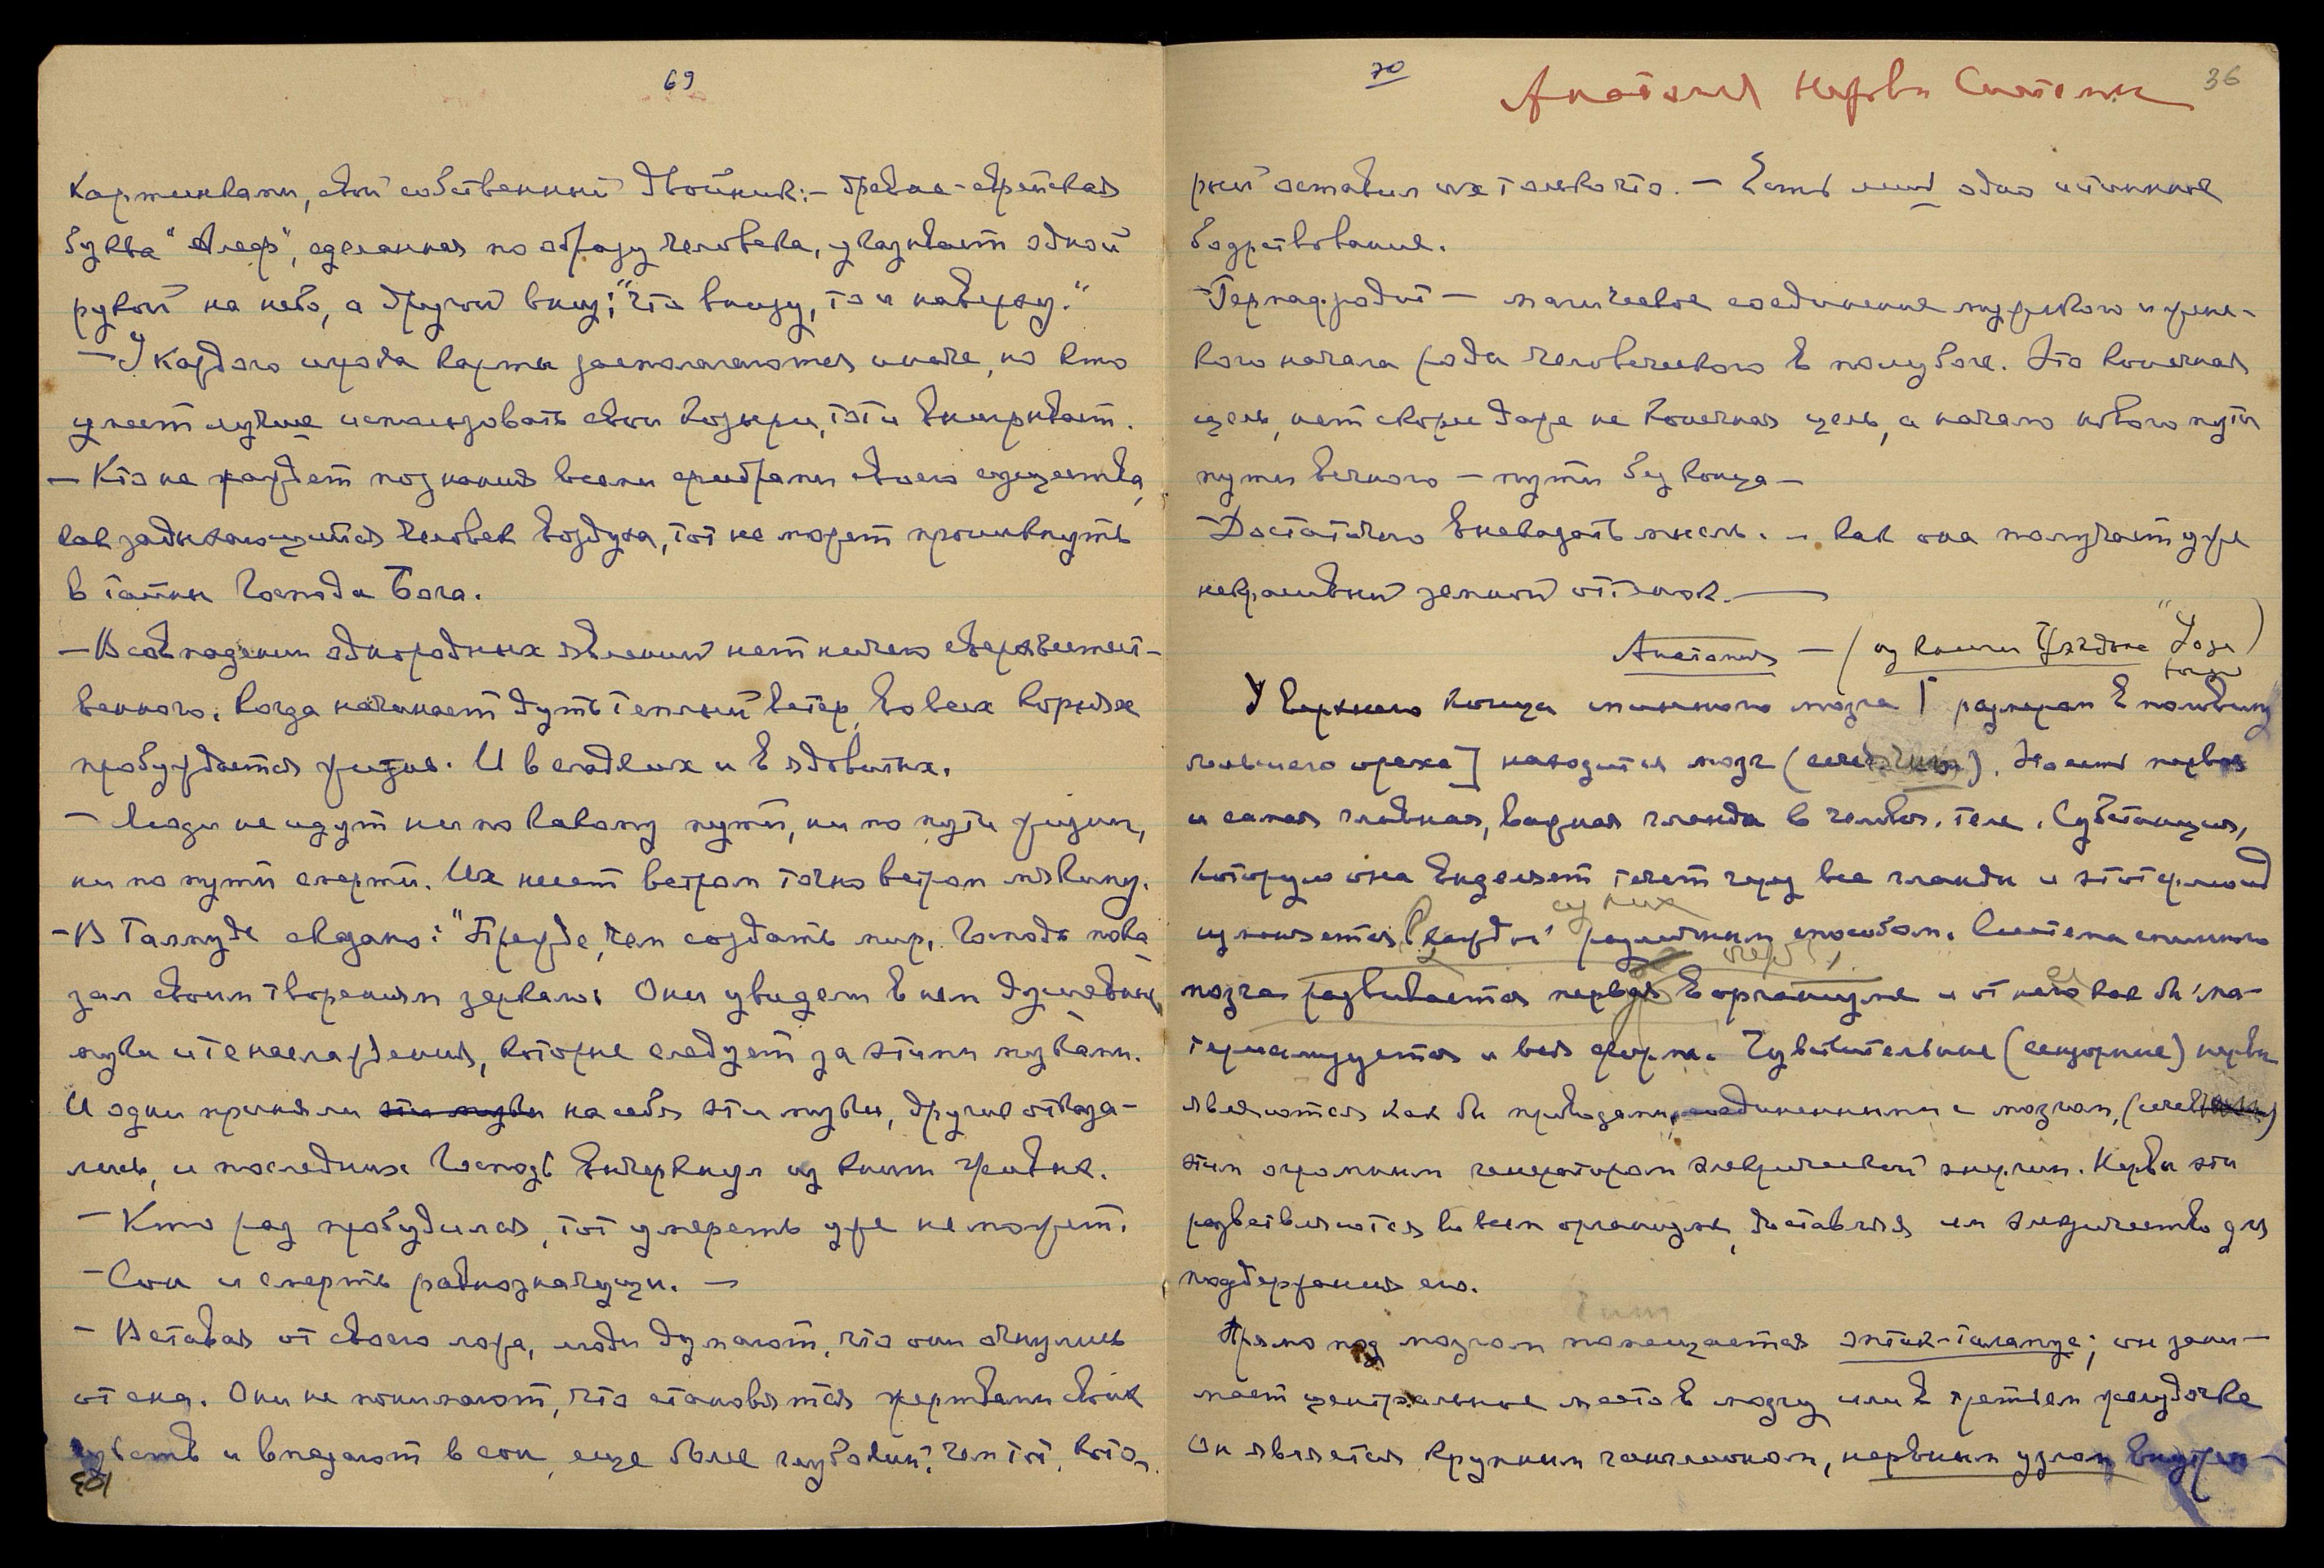 69
картинками, свой собственный двойник: – древне-еврейская
буква "Алеф", сделанная по образу человека, указывает одной
рукой на небо, а другой вниз: "что внизу, то и наверху."
– У каждого игрока карты располагаются иначе, но кто
умеет лучше использовать свои козыри, тот и выигрывает.
– Кто не жаждет познания всеми фибрами своего существа,
как задыхающийся человек воздуха, тот не может проникнуть
в тайны Господа Бога.
– В совпадении однородных явлений нет ничего сверхъестест-
венного. Когда начинает дуть теплый ветер, во всех корнях
пробуждается жизнь. И в сладких и в ядовитых.
– Люди не идут ни по какому пути, ни по пути жизни,
ни по пути смерти. Их несет ветром точно ветром мякину.
– В Талмуде сказано: "Прежде, чем создать мир, Господь пока
зал своим творениям зеркало: Они увидели в нем душевные
муки и те наслаждения, которые следуют за этими муками.
И одни приняли эти муки на себя эти муки, другие отказа-
лись, и последних Господь вычеркнул из книги живых.
– Кто раз пробудился, тот умереть уже не может.
– Сон и смерть равнозначущи. –
– Вставая от своего ложа, люди думают, что они очнулись
от сна. Они не понимают, что становятся жертвами своих
чувств и впадают в сон, еще более глубокий, чем тот, кото-
103
70
36
Анатомия Нервн Системы
рый оставил их только что. – Есть лишь одно истинное
бодрствование.
– Гермафродит – магическое соединение мужского и жен-
кого начала рода человеческого в полубоге. Это конечная
цель, нет скорее даже не конечная цель, а начало нового пути
пути вечного – пути без конца –
– Достаточно высказать мысль. – как она получает уже
некрасивый земной оттенок. –
Анатомия – (из книги "Йога)
У верхнего конца спинного мозга [размером в половину
ореха] находится мозг. Это есть первая
и самая главная, важная гланда в человеч. теле. Субстанция,
которую она выделяет течет через все гланды и этот флюид
из них
изменяется каждой различным способом. Система спинного
мозга развивается первая в организме и от него как бы ма-
териализуется и вся форма. Чувствительные (сензорные) нервы
являются как бы проводами, соединенными с мозгом,
этим огромным генератором электрической энергии. Нервы эти
разветвляются во всем организме, доставляя им электричество для
поддержания его.
Прямо под мозгом помещается оптик-таламус; он зани-
мает центральное место в мозгу или в третьем желудочке
Он является крупным ганглионом, нервным узлом